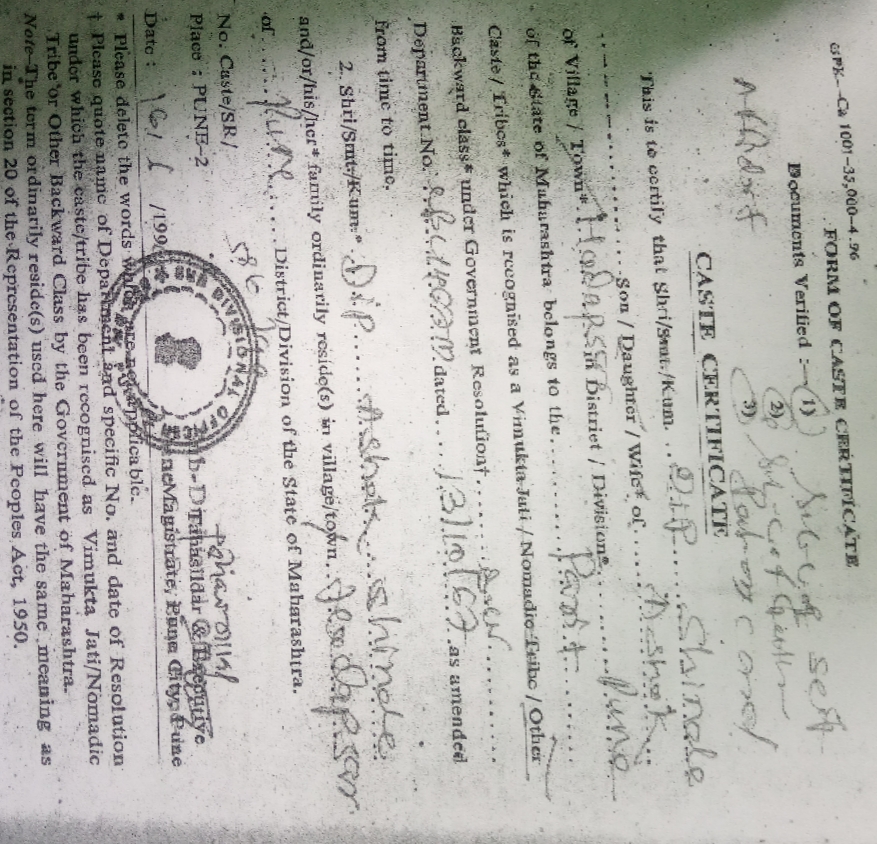 GPPK—Ca 1001–35,000–4.96
FORM OF CASTE CERTIFICATE
Documents Verified :— 1)
2)
3)
CASTE CERTIFICATE
This is to certify that Shri/Smt./Kum. Dip Shinde
Son / Daughter / Wife* of Ashok
of Village / Town* Hadapsar in District / Division* Pune
of the State of Maharashtra belongs to the Parit
Caste / Tribes* which is recognised as a Vimukta Jati / Nomadic Tribe / Other
Backward class* under Government Resolution†
Department No. dated 13/10/67 as amended
from time to time.
2. Shri/Smt./Kum.* Dip Ashok Shinde
and/or/his/her* family ordinarily reside(s) in village/town Hadapsar
of Pune District/Division of the State of Maharashtra.
No. Caste/SR/ 586
Place : PUNE-2
Date : 16/1/199
SUB DIVISIONAL OFFICE
Tahasildar & Executive
Magistrate, Pune City, Pune
* Please delete the words which are not applicable.
† Please quote name of Department and specific No. and date of Resolution
under which the caste/tribe has been recognised as Vimukta Jati/Nomadic
Tribe or Other Backward Class by the Government of Maharashtra.
Note–The term ordinarily reside(s) used here will have the same meaning as
in section 20 of the Representation of the Peoples Act, 1950.